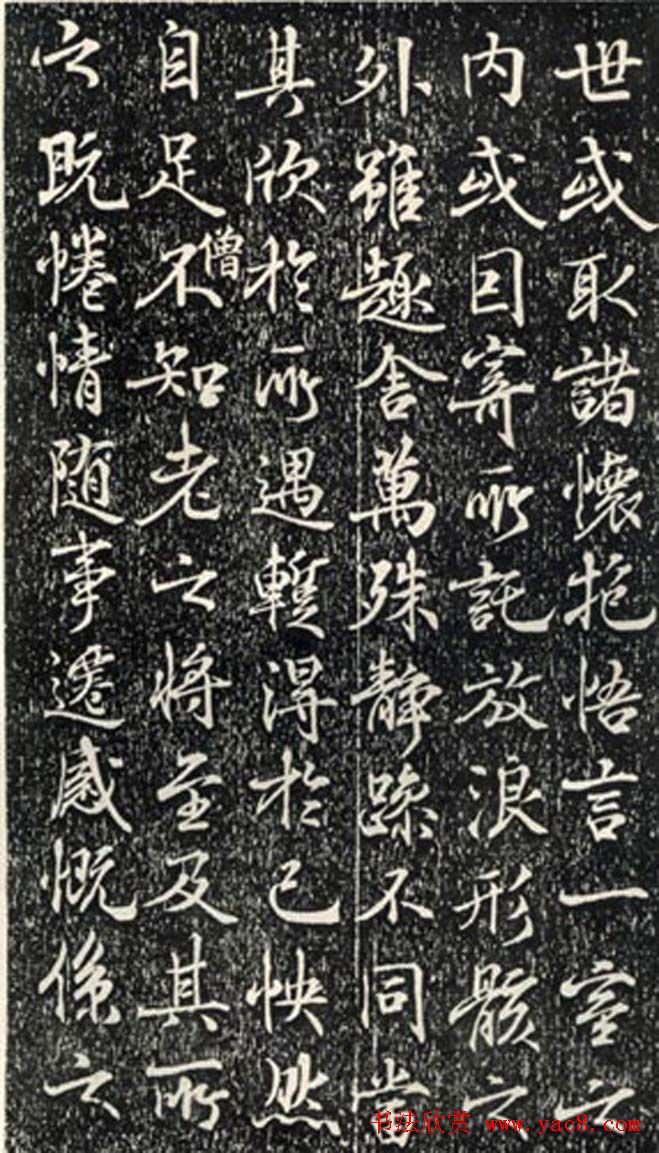 世或取諸懷抱悟言一室之
内或因寄所託放浪形骸之
外雖趣舍萬殊靜躁不同當
其欣於所遇暫得於己怏然
僧
自足不知老之將至及其所
之既惓情隨事遷感慨係之
书法欣赏 www.yac8.com